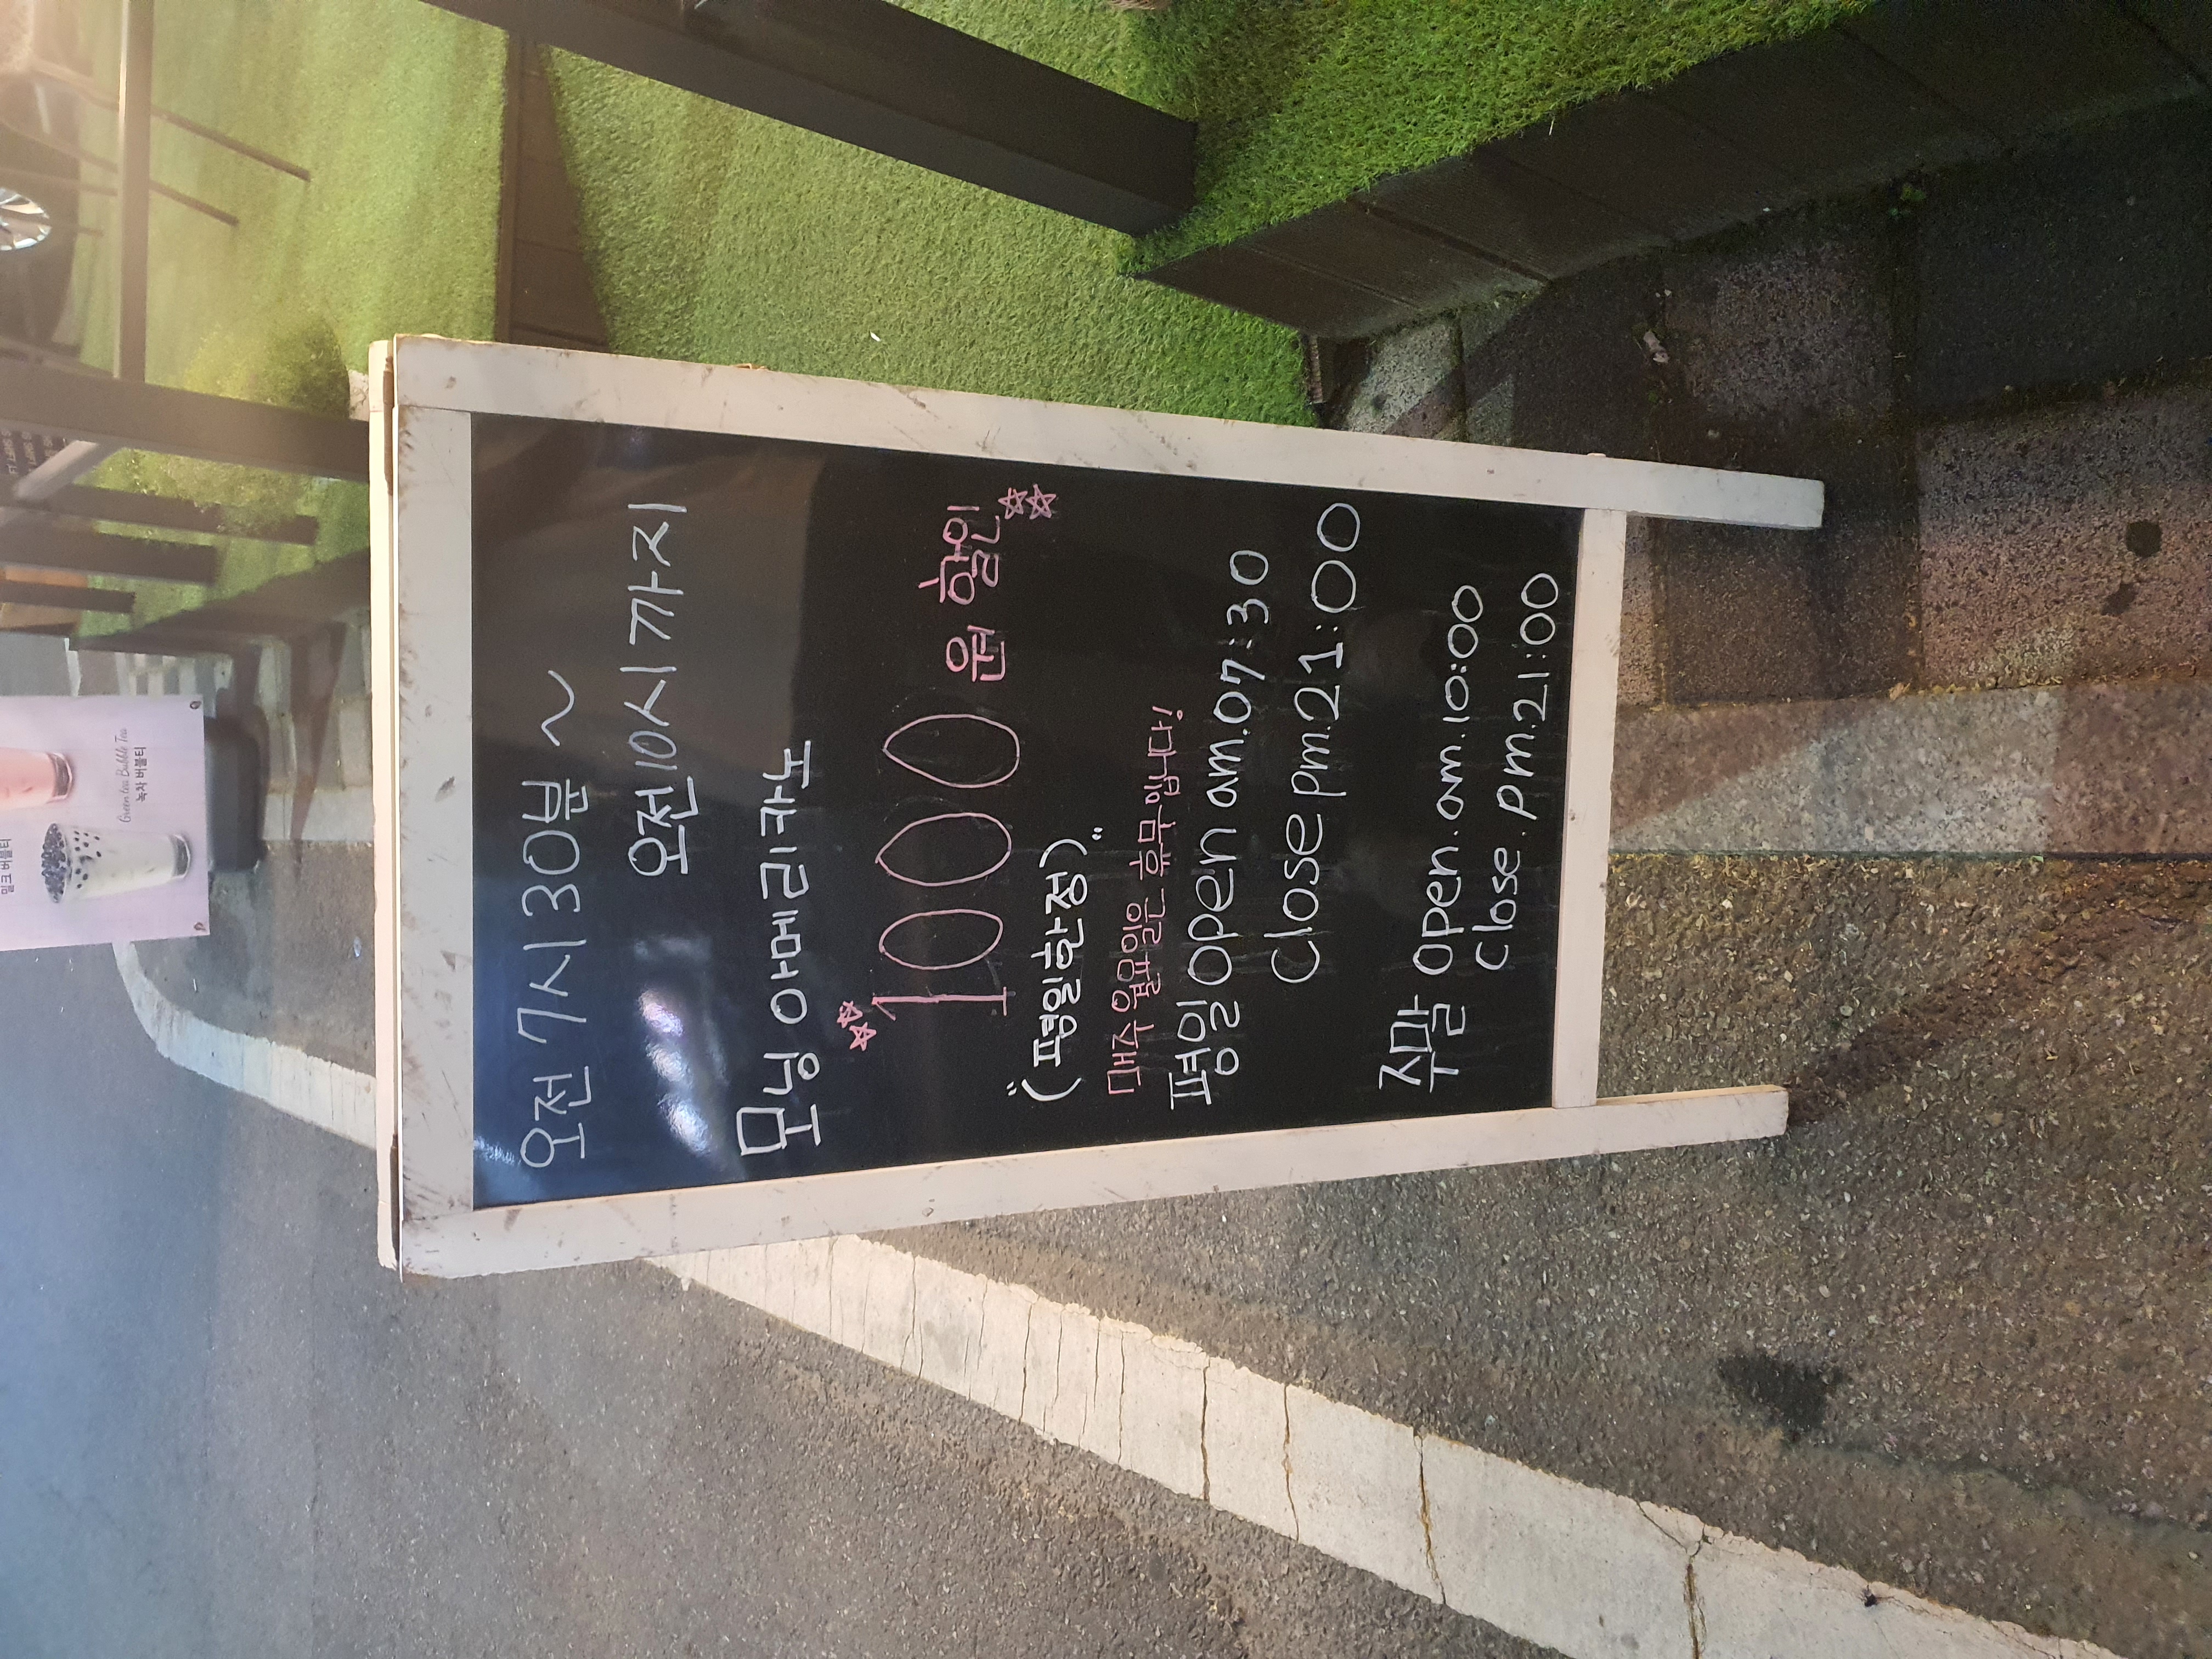 오전 7시 30분 ~
오전 10시 까지
모닝 아메리카노
☆☆1000 원 할인☆☆
"(평일한정)"
매주 월요일은 휴무입니다!
평일 open am.07:30
Close pm.21:00
주말 open.am.10:00
Close.pm.21:00
밀크 버블티
Green tea Bubble Tea
녹차 버블티